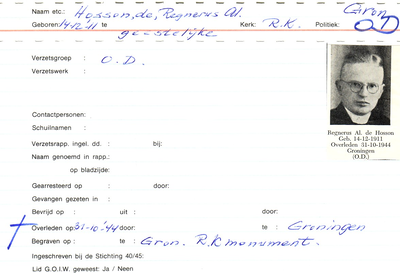 Naam etc.: Hosson, de, Regnerus Al. Gron.
Geboren: 14-12-'11 te Kerk: R.K. Politiek: OD
geestelijke
Verzetsgroep : O.D.
Verzetswerk :
Contactpersonen:
Schuilnamen :
Verzetsrapp. ingel. dd. : bij:
Naam genoemd in rapp.:
op bladzijde:
Gearresteerd op : door:
Gevangen gezeten in :
Bevrijd op : uit : door:
Overleden op: 31-10-'44 door: te : Groningen
Begraven op : te : Gron. R.K monument.
Ingeschreven bij de Stichting 40/45:
Lid G.O.I.W. geweest: Ja / Neen
Regnerus Al. de Hosson
Geb. 14-12-1911
Overleden 31-10-1944
Groningen
(O.D.)